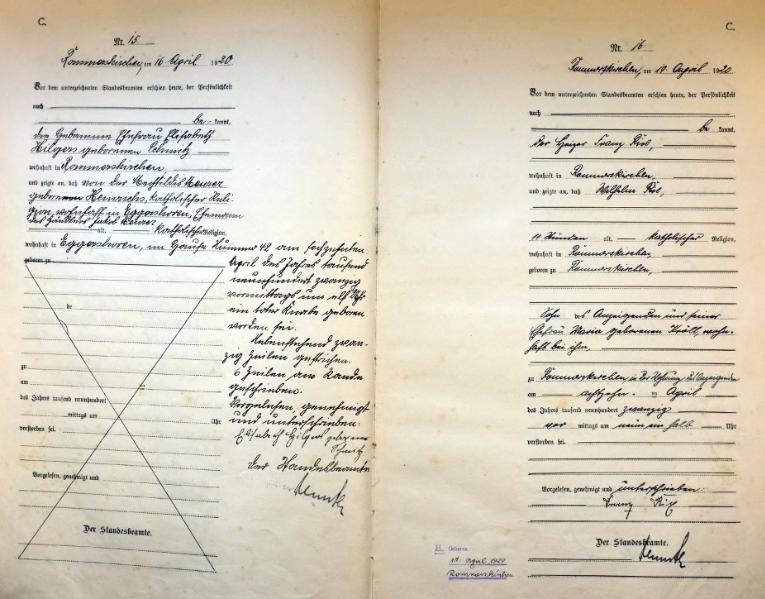 C.
Nr. 15
Rommerskirchen, am 16 April 1920
Vor dem unterzeichneten Standesbeamten erschien heute, der Persönlichkeit
nach
be - kannt,
die Hebamme Ehefrau Elisabeth
Hilgers geborenen Schmitz
wohnhaft in Rommerskirchen,
und zeigte an, daß von der Mechtildis
geborenen Heinrichs, katholischer Reli-
gion, wohnhaft in Eggershoven, Ehefrau
des Jakob
alt, katholischer Religion,
wohnhaft in Eggershoven, im Hause Nummer 42 am sechzehnten
geboren zu
April des Jahres tausend
neunhundert zwanzig
vormittags um elf Uhr
ein toter Knabe geboren
worden sei.
Nebenstehend zwan-
zig Zeilen gestrichen.
6 Zeilen am Rande
geschrieben.
Vorgelesen, genehmigt
und unterschrieben:
Elisabeth Hilgers geborene
Schmitz
Der Standesbeamte
de
zu
am
des Jahres tausend neunhundert
mittags um Uhr
verstorben sei.
Vorgelesen, genehmigt und
Der Standesbeamte.
C.
Nr. 16
Rommerskirchen, am 19 April 1920
Vor dem unterzeichneten Standesbeamten erschien heute, der Persönlichkeit
nach
be kannt,
der Heizer Franz
wohnhaft in Rommerskirchen,
und zeigte an, daß Wilhelm
11 Stunden alt, katholischer Religion,
wohnhaft in Rommerskirchen
geboren zu Rommerskirchen,
Sohn des Anzeigenden und seiner
Ehefrau Maria geborenen Kröll, wohn-
haft bei ihm,
zu Rommerskirchen in der Wohnung des Anzeigenden
am achtzehn- ten April
des Jahres tausend neunhundert zwanzig
vor mittags um neun ein halb Uhr
verstorben sei.
Vorgelesen, genehmigt und unterschrieben:
Franz
Der Standesbeamte.
H. Geboren
April
Rommerskirchen